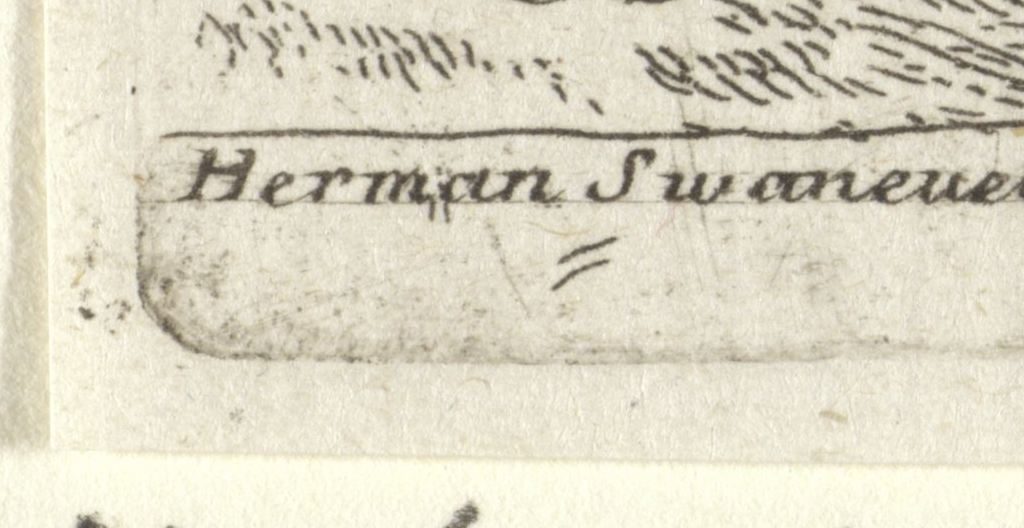 Herman Swaneuel